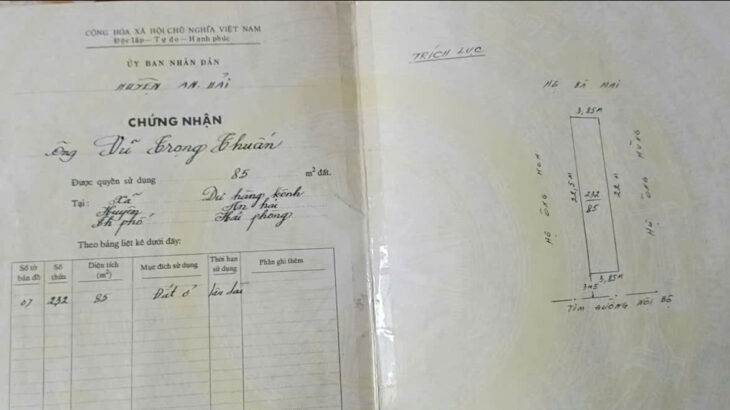 CỘNG HÒA XÃ HỘI CHỦ NGHĨA VIỆT NAM
Độc lập — Tự do — Hạnh phúc
ỦY BAN NHÂN DÂN
HUYỆN AN HẢI
CHỨNG NHẬN
Ông Vũ Trọng Thuấn
Được quyền sử dụng 85 m² đất.
Tại: Xã Dư hàng kênh
Huyện An hải
Th phố Hải phòng
Theo bảng liệt kê dưới đây:
Số tờ bản đồ Số thửa Diện tích (m²) Mục đích sử dụng Thời hạn sử dụng Phần ghi thêm
07 232 85 Đất ở lâu dài
TRÍCH LỤC
HỘ BÀ MAI
3,85M
HỘ ÔNG HOA
22,5M
232
85
22M
HỘ ÔNG HÙNG
3,85M
3M5
TIM ĐƯỜNG NỘI BỘ